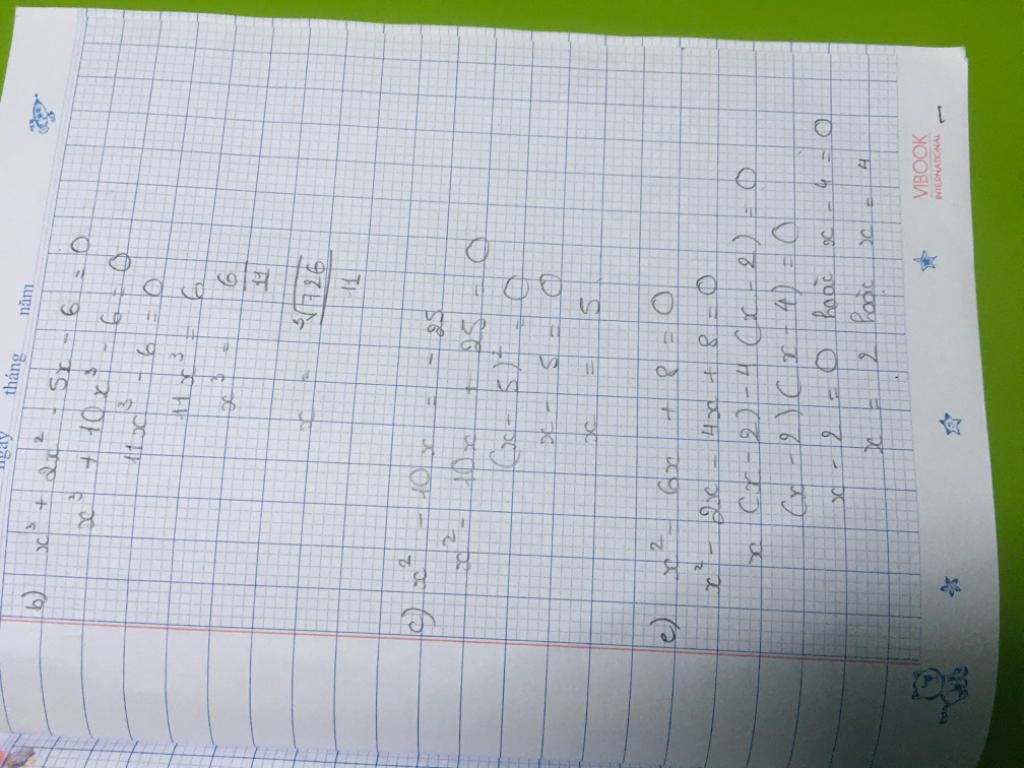 ngày tháng năm
b) x³ + 2x² - 5x - 6 = 0
x³ + 10x³ - 6 = 0
11x³ - 6 = 0
11x³ = 6
x³ = 6/11
x = ∛726/11
c) x² - 10x = - 25
x² - 10x + 25 = 0
(x - 5)² = 0
x - 5 = 0
x = 5
e) x² - 6x + 8 = 0
x² - 2x - 4x + 8 = 0
x (x - 2) - 4 (x - 2) = 0
(x - 2) (x - 4) = 0
x - 2 = 0 hoặc x - 4 = 0
x = 2 hoặc x = 4
VIBOOK
INTERNATIONAL
1